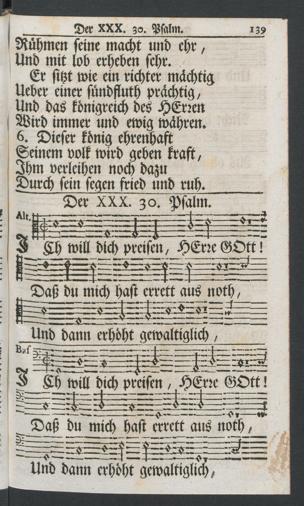 Der XXX. 30. Psalm. 139
Rühmen seine macht und ehr,
Und mit lob erheben sehr.
Er sitzt wie ein richter mächtig
Ueber einer sündfluth prächtig,
Und das königreich des HErren
Wird immer und ewig währen.
6. Dieser könig ehrenhaft
Seinem volk wird geben kraft,
Ihm verleihen noch dazu
Durch sein segen fried und ruh.
Der XXX. 30. Psalm.
Alt.
ICh will dich preisen, HErre GOtt!
Daß du mich hast errett aus noth,
Und dann erhöht gewaltiglich,
Bas
ICh will dich preisen, HErre GOtt!
Daß du mich hast errett aus noth,
Und dann erhöht gewaltiglich,